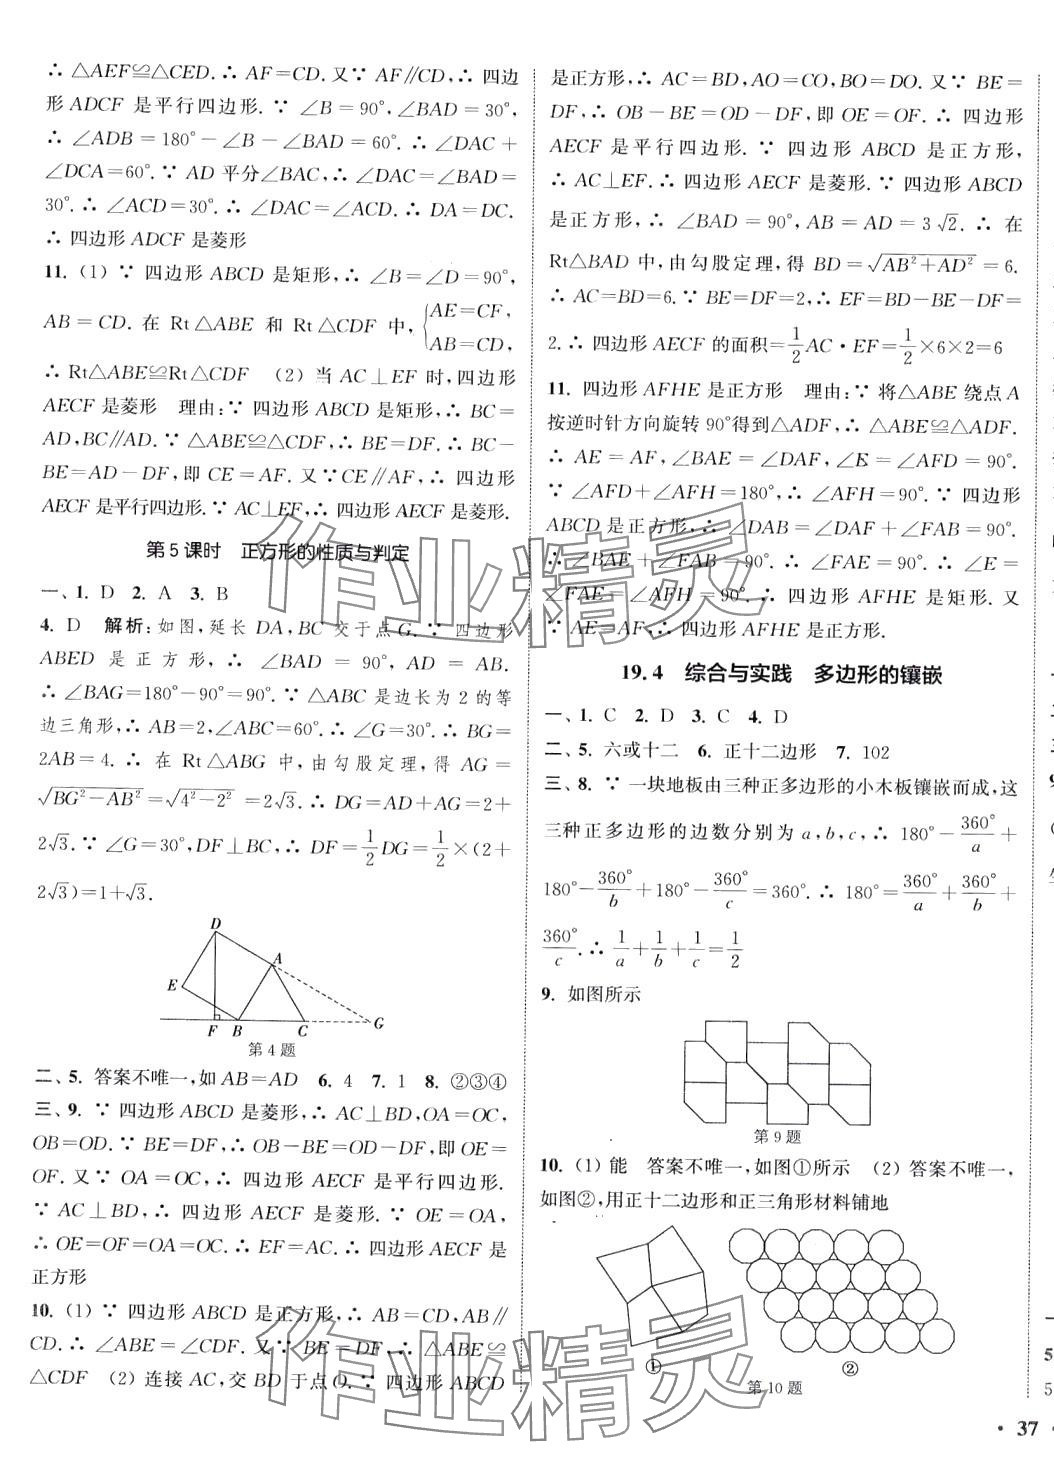 ∴ △AEF≌△CED.∴ AF=CD. 又∵ AF∥CD,∴ 四边
形 ADCF 是平行四边形.∵ ∠B=90°,∠BAD=30°,
∴ ∠ADB=180°-∠B-∠BAD=60°.∴ ∠DAC+
∠DCA=60°.∵ AD 平分∠BAC,∴ ∠DAC=∠BAD=
30°.∴ ∠ACD=30°.∴ ∠DAC=∠ACD.∴ DA=DC.
∴ 四边形 ADCF 是菱形
11. (1) ∵ 四边形 ABCD 是矩形,∴ ∠B=∠D=90°,
AB=CD. 在 Rt△ABE 和 Rt△CDF 中,{AE=CF,
AB=CD,
∴ Rt△ABE≌Rt△CDF (2) 当 AC⊥EF 时,四边形
AECF 是菱形 理由:∵ 四边形 ABCD 是矩形,∴ BC=
AD,BC∥AD.∵ △ABE≌△CDF,∴ BE=DF.∴ BC-
BE=AD-DF,即 CE=AF. 又∵CE∥AF,∴ 四边形
AECF 是平行四边形.∵ AC⊥EF,∴ 四边形 AECF 是菱形.
第 5 课时 正方形的性质与判定
一、1. D 2. A 3. B
4. D 解析:如图,延长 DA,BC 交于点 G.∵ 四边形
ABED 是正方形,∴ ∠BAD=90°,AD=AB.
∴ ∠BAG=180°-90°=90°.∵ △ABC 是边长为 2 的等
边三角形,∴ AB=2,∠ABC=60°.∴ ∠G=30°.∴ BG=
2AB=4.∴ 在 Rt△ABG 中,由勾股定理,得 AG=
√(BG²-AB²)=√(4²-2²)=2√3.∴ DG=AD+AG=2+
2√3.∵ ∠G=30°,DF⊥BC,∴ DF=1/2DG=1/2×(2+
2√3)=1+√3.
D
A
E
F B C G
第 4 题
二、5. 答案不唯一,如 AB=AD 6. 4 7. 1 8. ②③④
三、9. ∵ 四边形 ABCD 是菱形,∴ AC⊥BD,OA=OC,
OB=OD.∵ BE=DF,∴ OB-BE=OD-DF,即 OE=
OF. 又∵ OA=OC,∴ 四边形 AECF 是平行四边形.
∵ AC⊥BD,∴ 四边形 AECF 是菱形.∵ OE=OA,
∴ OE=OF=OA=OC.∴ EF=AC.∴ 四边形 AECF 是
正方形
10. (1) ∵ 四边形 ABCD 是正方形,∴ AB=CD,AB∥
CD.∴ ∠ABE=∠CDF. 又∵ BE=DF,∴ △ABE≌
△CDF (2) 连接 AC,交 BD 于点 O.∵ 四边形 ABCD
是正方形,∴ AC=BD,AO=CO,BO=DO. 又∵ BE=
DF,∴ OB-BE=OD-DF,即 OE=OF.∴ 四边形
AECF 是平行四边形.∵ 四边形 ABCD 是正方形,
∴ AC⊥EF.∴ 四边形 AECF 是菱形.∵ 四边形 ABCD
是正方形,∴ ∠BAD=90°,AB=AD=3√2.∴ 在
Rt△BAD 中,由勾股定理,得 BD=√(AB²+AD²)=6.
∴ AC=BD=6.∵ BE=DF=2,∴ EF=BD-BE-DF=
2.∴ 四边形 AECF 的面积=1/2AC·EF=1/2×6×2=6
11. 四边形 AFHE 是正方形 理由:∵ 将△ABE 绕点 A
按逆时针方向旋转 90°得到△ADF,∴ △ABE≌△ADF.
∴ AE=AF,∠BAE=∠DAF,∠E=∠AFD=90°.
∵ ∠AFD+∠AFH=180°,∴ ∠AFH=90°.∵ 四边形
ABCD 是正方形,∴ ∠DAB=∠DAF+∠FAB=90°.
∴ ∠BAE+∠FAB=∠FAE=90°.∴ ∠E=
∠FAE=∠AFH=90°.∴ 四边形 AFHE 是矩形. 又
∵ AE=AF,∴ 四边形 AFHE 是正方形.
19.4 综合与实践 多边形的镶嵌
一、1. C 2. D 3. C 4. D
二、5. 六或十二 6. 正十二边形 7. 102
三、8. ∵ 一块地板由三种正多边形的小木板镶嵌而成,这
三种正多边形的边数分别为 a,b,c,∴ 180°-360°/a+
180°-360°/b+180°-360°/c=360°.∴ 180°=360°/a+360°/b+
360°/c.∴ 1/a+1/b+1/c=1/2
9. 如图所示
第 9 题
10. (1) 能 答案不唯一,如图①所示 (2) 答案不唯一,
如图②,用正十二边形和正三角形材料铺地
① ②
第 10 题
· 37 ·
作业精灵
作业精灵